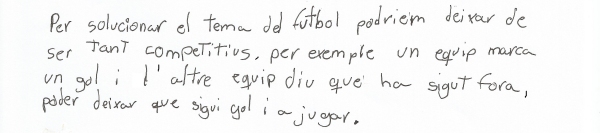 Per solucionar el tema del futbol podriem deixar de
ser tant competitius, per exemple un equip marca
un gol i l'altre equip diu que ha sigut fora,
poder deixar que sigui gol i a jugar.